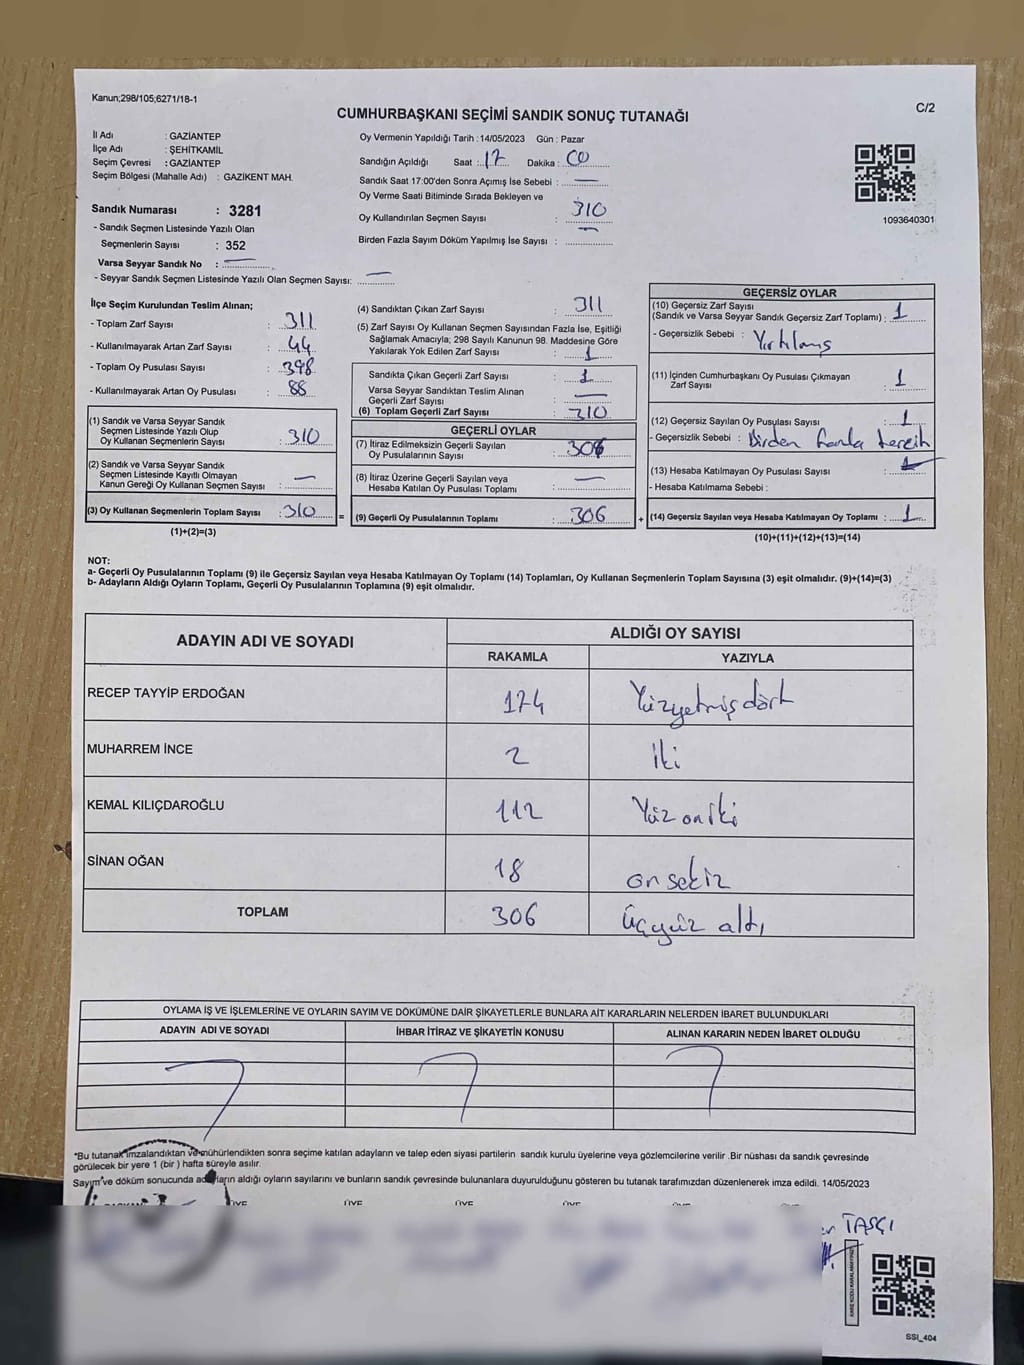 Kanun;298/105;6271/18-1
C/2
CUMHURBAŞKANI SEÇİMİ SANDIK SONUÇ TUTANAĞI
İl Adı : GAZİANTEP
İlçe Adı : ŞEHİTKAMİL
Seçim Çevresi : GAZİANTEP
Seçim Bölgesi (Mahalle Adı) : GAZİKENT MAH.
Sandık Numarası : 3281
- Sandık Seçmen Listesinde Yazılı Olan
Seçmenlerin Sayısı : 352
Varsa Seyyar Sandık No : —
- Seyyar Sandık Seçmen Listesinde Yazılı Olan Seçmen Sayısı: —
Oy Vermenin Yapıldığı Tarih : 14/05/2023 Gün : Pazar
Sandığın Açıldığı Saat : 17 Dakika : 00
Sandık Saat 17:00'den Sonra Açımış İse Sebebi : —
Oy Verme Saati Bitiminde Sırada Bekleyen ve
Oy Kullandırılan Seçmen Sayısı : 310
Birden Fazla Sayım Döküm Yapılmış İse Sayısı : —
1093640301
İlçe Seçim Kurulundan Teslim Alınan;
- Toplam Zarf Sayısı : 311
- Kullanılmayarak Artan Zarf Sayısı : 44
- Toplam Oy Pusulası Sayısı : 398
- Kullanılmayarak Artan Oy Pusulası : 88
(1) Sandık ve Varsa Seyyar Sandık
Seçmen Listesinde Yazılı Olup
Oy Kullanan Seçmenlerin Sayısı : 310
(2) Sandık ve Varsa Seyyar Sandık
Seçmen Listesinde Kayıtlı Olmayan
Kanun Gereği Oy Kullanan Seçmen Sayısı : —
(3) Oy Kullanan Seçmenlerin Toplam Sayısı : 310
(1)+(2)=(3)
(4) Sandıktan Çıkan Zarf Sayısı : 311
(5) Zarf Sayısı Oy Kullanan Seçmen Sayısından Fazla İse, Eşitliği
Sağlamak Amacıyla; 298 Sayılı Kanunun 98. Maddesine Göre
Yakılarak Yok Edilen Zarf Sayısı : 1
Sandıkta Çıkan Geçerli Zarf Sayısı : 1
Varsa Seyyar Sandıktan Teslim Alınan
Geçerli Zarf Sayısı : —
(6) Toplam Geçerli Zarf Sayısı : 310
GEÇERLİ OYLAR
(7) İtiraz Edilmeksizin Geçerli Sayılan
Oy Pusulalarının Sayısı : 306
(8) İtiraz Üzerine Geçerli Sayılan veya
Hesaba Katılan Oy Pusulası Toplamı : —
=
(9) Geçerli Oy Pusulalarının Toplamı : 306
GEÇERSİZ OYLAR
(10) Geçersiz Zarf Sayısı
(Sandık ve Varsa Seyyar Sandık Geçersiz Zarf Toplamı) : 1
- Geçersizlik Sebebi : Yırtılmış
(11) İçinden Cumhurbaşkanı Oy Pusulası Çıkmayan
Zarf Sayısı : 1
(12) Geçersiz Sayılan Oy Pusulası Sayısı : 1
- Geçersizlik Sebebi : Birden fazla tercih
(13) Hesaba Katılmayan Oy Pusulası Sayısı : 1
- Hesaba Katılmama Sebebi :
+ (14) Geçersiz Sayılan veya Hesaba Katılmayan Oy Toplamı : 1
(10)+(11)+(12)+(13)=(14)
NOT:
a- Geçerli Oy Pusulalarının Toplamı (9) ile Geçersiz Sayılan veya Hesaba Katılmayan Oy Toplamı (14) Toplamları, Oy Kullanan Seçmenlerin Toplam Sayısına (3) eşit olmalıdır. (9)+(14)=(3)
b- Adayların Aldığı Oyların Toplamı, Geçerli Oy Pusulalarının Toplamına (9) eşit olmalıdır.
ADAYIN ADI VE SOYADI
ALDIĞI OY SAYISI
RAKAMLA YAZIYLA
RECEP TAYYİP ERDOĞAN 174 Yüzyetmişdört
MUHARREM İNCE 2 İki
KEMAL KILIÇDAROĞLU 112 Yüz oniki
SİNAN OĞAN 18 on sekiz
TOPLAM 306 üçyüz altı
OYLAMA İŞ VE İŞLEMLERİNE VE OYLARIN SAYIM VE DÖKÜMÜNE DAİR ŞİKAYETLERLE BUNLARA AİT KARARLARIN NELERDEN İBARET BULUNDUKLARI
ADAYIN ADI VE SOYADI İHBAR İTİRAZ VE ŞİKAYETİN KONUSU ALINAN KARARIN NEDEN İBARET OLDUĞU
*Bu tutanak imzalandıktan ve mühürlendikten sonra seçime katılan adayların ve talep eden siyasi partilerin sandık kurulu üyelerine veya gözlemcilerine verilir .Bir nüshası da sandık çevresinde
görülecek bir yere 1 (bir ) hafta süreyle asılır.
Sayım ve döküm sonucunda adayların aldığı oyların sayılarını ve bunların sandık çevresinde bulunanlara duyurulduğunu gösteren bu tutanak tarafımızdan düzenlenerek imza edildi. 14/05/2023
ÜYE ÜYE ÜYE ÜYE
TAŞÇI
SSI_404